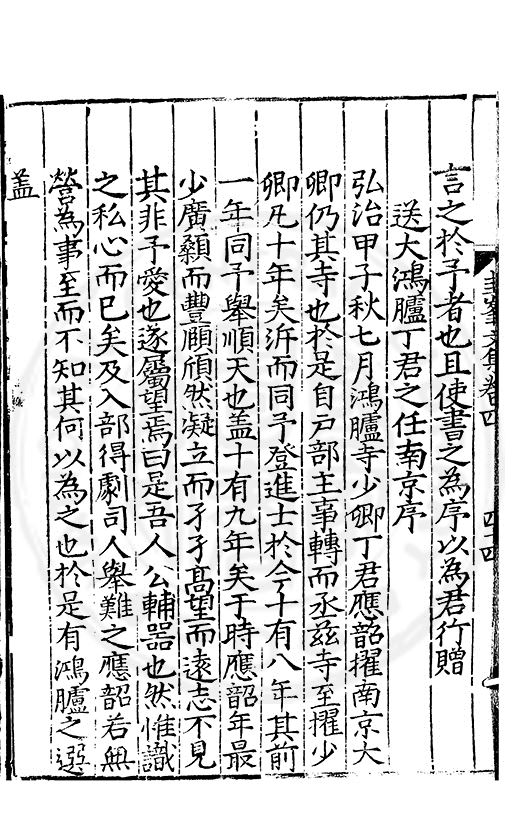 言之於予者也且使書之為序以為君行贈
送大鴻臚丁君之任南京序
弘治甲子秋七月鴻臚寺少卿丁君應韶擢南京大
卿仍其寺也於是自戸部主事轉而丞茲寺至擢少
卿凡十年矣泝而同予登進士於今十有八年其前
一年同予舉順天也盖十有九年矣于時應韶年最
少廣顙而豐頤頎然凝立而孑孑高望而遠志不見
其非予愛也遂屬望焉曰是吾人公輔器也然惟識
之私心而已矣及入部得劇司人舉難之應韶若無
營為事至而不知其何以為之也於是有鴻臚之選
盖
文集卷四
四十四